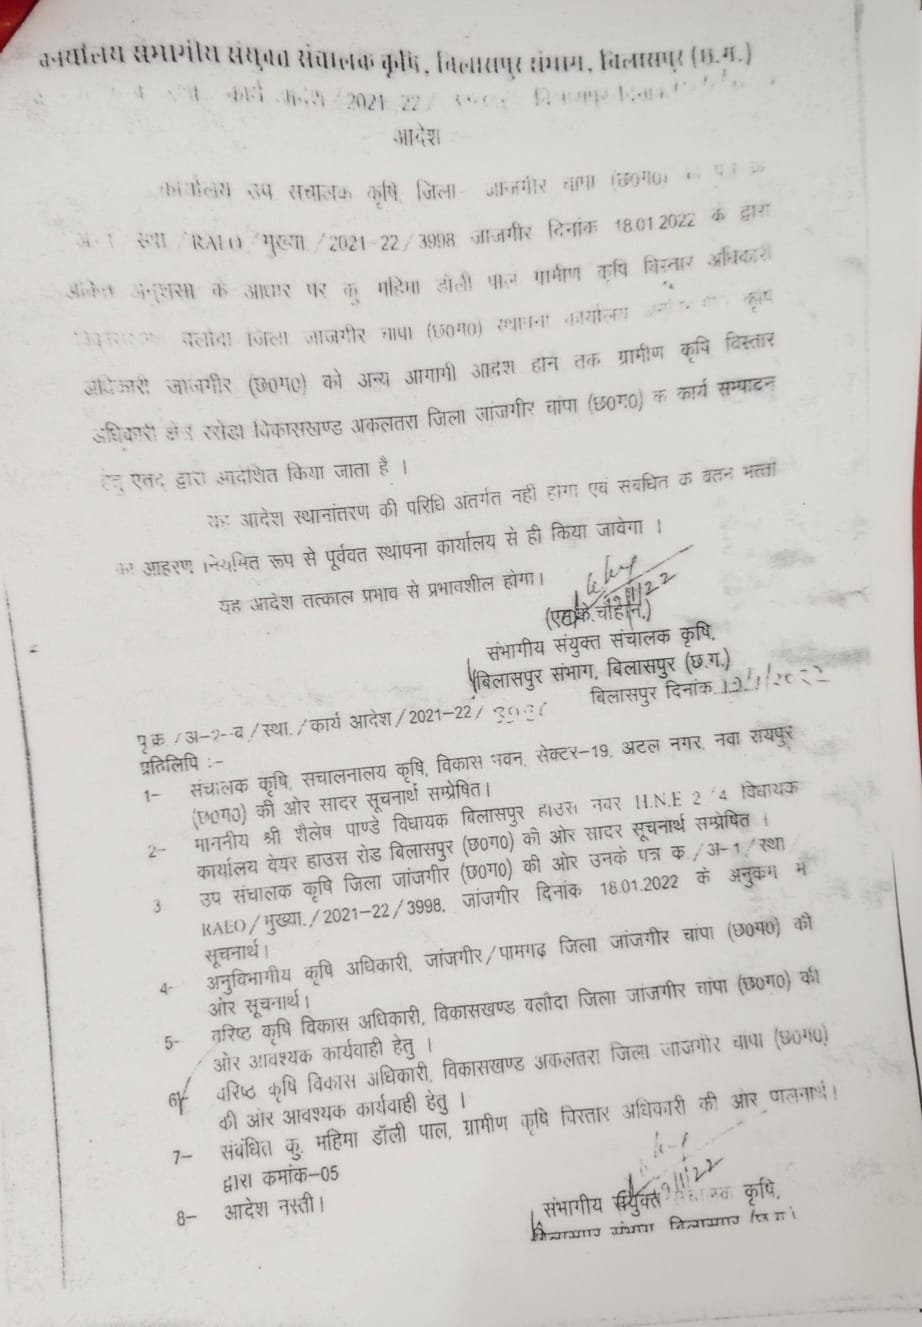 कार्यालय संभागीय संयुक्त संचालक कृषि, बिलासपुर संभाग, बिलासपुर (छ.ग.)
कार्य आदेश / 2021-22 /
आदेश
कार्यालय उप संचालक कृषि, जिला जांजगीर चांपा (छ0ग0)
स्था / RAEO / मुख्या / 2021-22 / 3998 जांजगीर दिनांक 18.01.2022 के द्वारा
अनुशंसा के आधार पर कु महिमा डॉली पाल ग्रामीण कृषि विस्तार अधिकारी
बलौदा जिला जांजगीर चांपा (छ0ग0) स्थापना कार्यालय कृषि
अधिकारी जांजगीर (छ0ग0) को अन्य आगामी आदेश होने तक ग्रामीण कृषि विस्तार
अधिकारी क्षेत्र विकासखण्ड अकलतरा जिला जांजगीर चांपा (छ0ग0) के कार्य सम्पादन
हेतु एतद् द्वारा आदेशित किया जाता है ।
यह आदेश स्थानांतरण की परिधि अंतर्गत नहीं होगा एवं संबंधित के वेतन भत्तों
का आहरण नियमित रूप से पूर्ववत स्थापना कार्यालय से ही किया जावेगा ।
यह आदेश तत्काल प्रभाव से प्रभावशील होगा।
(एम.के.चौहान)
संभागीय संयुक्त संचालक कृषि,
बिलासपुर संभाग, बिलासपुर (छ.ग.)
पृ.क्र. / अ-2-ब / स्था. / कार्य आदेश / 2021-22 / बिलासपुर दिनांक
प्रतिलिपि :-
1- संचालक कृषि, संचालनालय कृषि, विकास भवन, सेक्टर-19, अटल नगर, नवा रायपुर
(छ0ग0) की ओर सादर सूचनार्थ सम्प्रेषित।
2- माननीय श्री शैलेष पाण्डे विधायक बिलासपुर हाउस नंबर H.N.E 2/4 विधायक
कार्यालय वेयर हाउस रोड बिलासपुर (छ0ग0) की ओर सादर सूचनार्थ सम्प्रेषित ।
3 उप संचालक कृषि जिला जांजगीर (छ0ग0) की ओर उनके पत्र क्र. / अ-1 / स्था
RAEO / मुख्या. / 2021-22 / 3998, जांजगीर दिनांक 18.01.2022 के अनुक्रम में
सूचनार्थ।
4- अनुविभागीय कृषि अधिकारी, जांजगीर / पामगढ़ जिला जांजगीर चांपा (छ0ग0) की
ओर सूचनार्थ।
5- वरिष्ठ कृषि विकास अधिकारी, विकासखण्ड बलौदा जिला जांजगीर चांपा (छ0ग0) की
ओर आवश्यक कार्यवाही हेतु ।
6- वरिष्ठ कृषि विकास अधिकारी, विकासखण्ड अकलतरा जिला जांजगीर चांपा (छ0ग0)
की ओर आवश्यक कार्यवाही हेतु ।
7- संबंधित कु. महिमा डॉली पाल, ग्रामीण कृषि विस्तार अधिकारी की ओर पालनार्थ।
द्वारा कमांक-05
8- आदेश नस्ती।
संभागीय संयुक्त संचालक कृषि,
बिलासपुर संभाग बिलासपुर (छ.ग.)